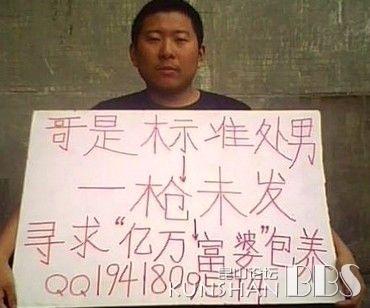 哥是标准处男
一枪未发
寻求“亿万富婆”包养
昆山论坛
KUNSHAN BBS